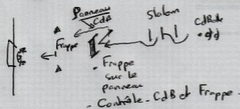 Panneau
CdB
Slalom
CdB
Frappe
• Frappe
sur le
panneau
- Contrôle - CdB et Frappe -